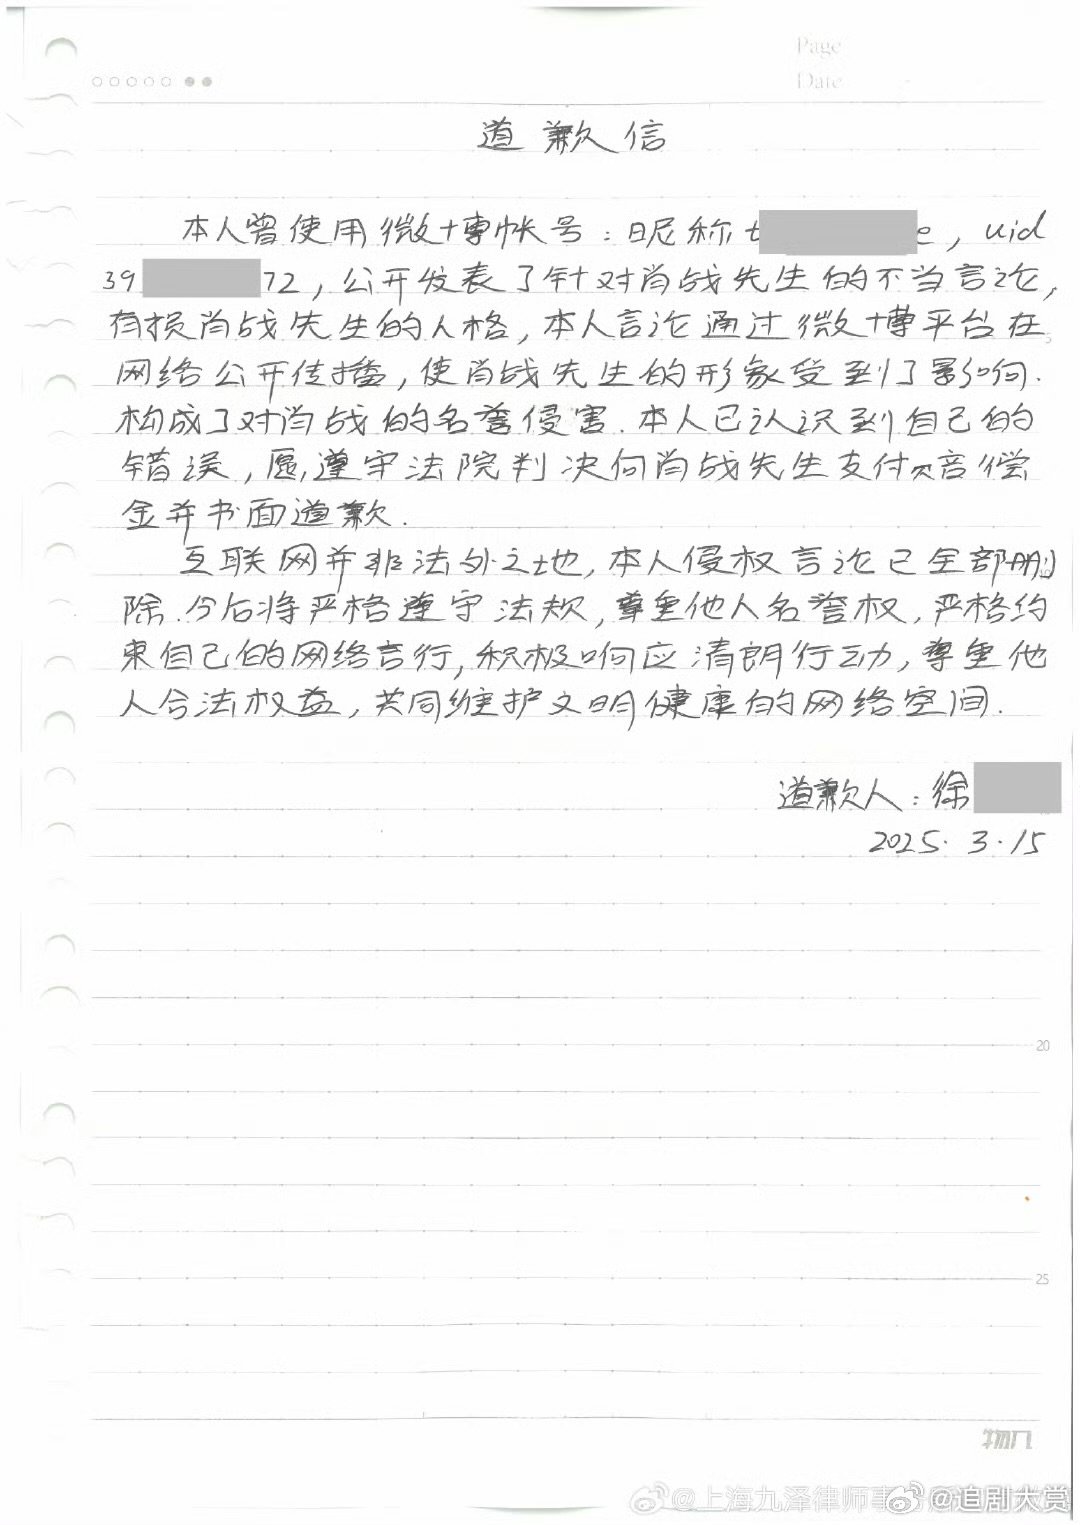 Page
Date
道歉信
本人曾使用微博帐号：昵称t e，uid
39 72，公开发表了针对肖战先生的不当言论，
有损肖战先生的人格，本人言论通过微博平台在
网络公开传播，使肖战先生的形象受到了影响.
构成了对肖战的名誉侵害.本人已认识到自己的
错误，愿遵守法院判决向肖战先生支付赔偿
金并书面道歉.
互联网并非法外之地，本人侵权言论已全部删
除.今后将严格遵守法规，尊重他人名誉权，严格约
束自己的网络言行，积极响应清朗行动，尊重他
人合法权益，共同维护文明健康的网络空间.
道歉人：徐
2025.3.15
5
10
20
25
@上海九泽律师事
@追剧大赏